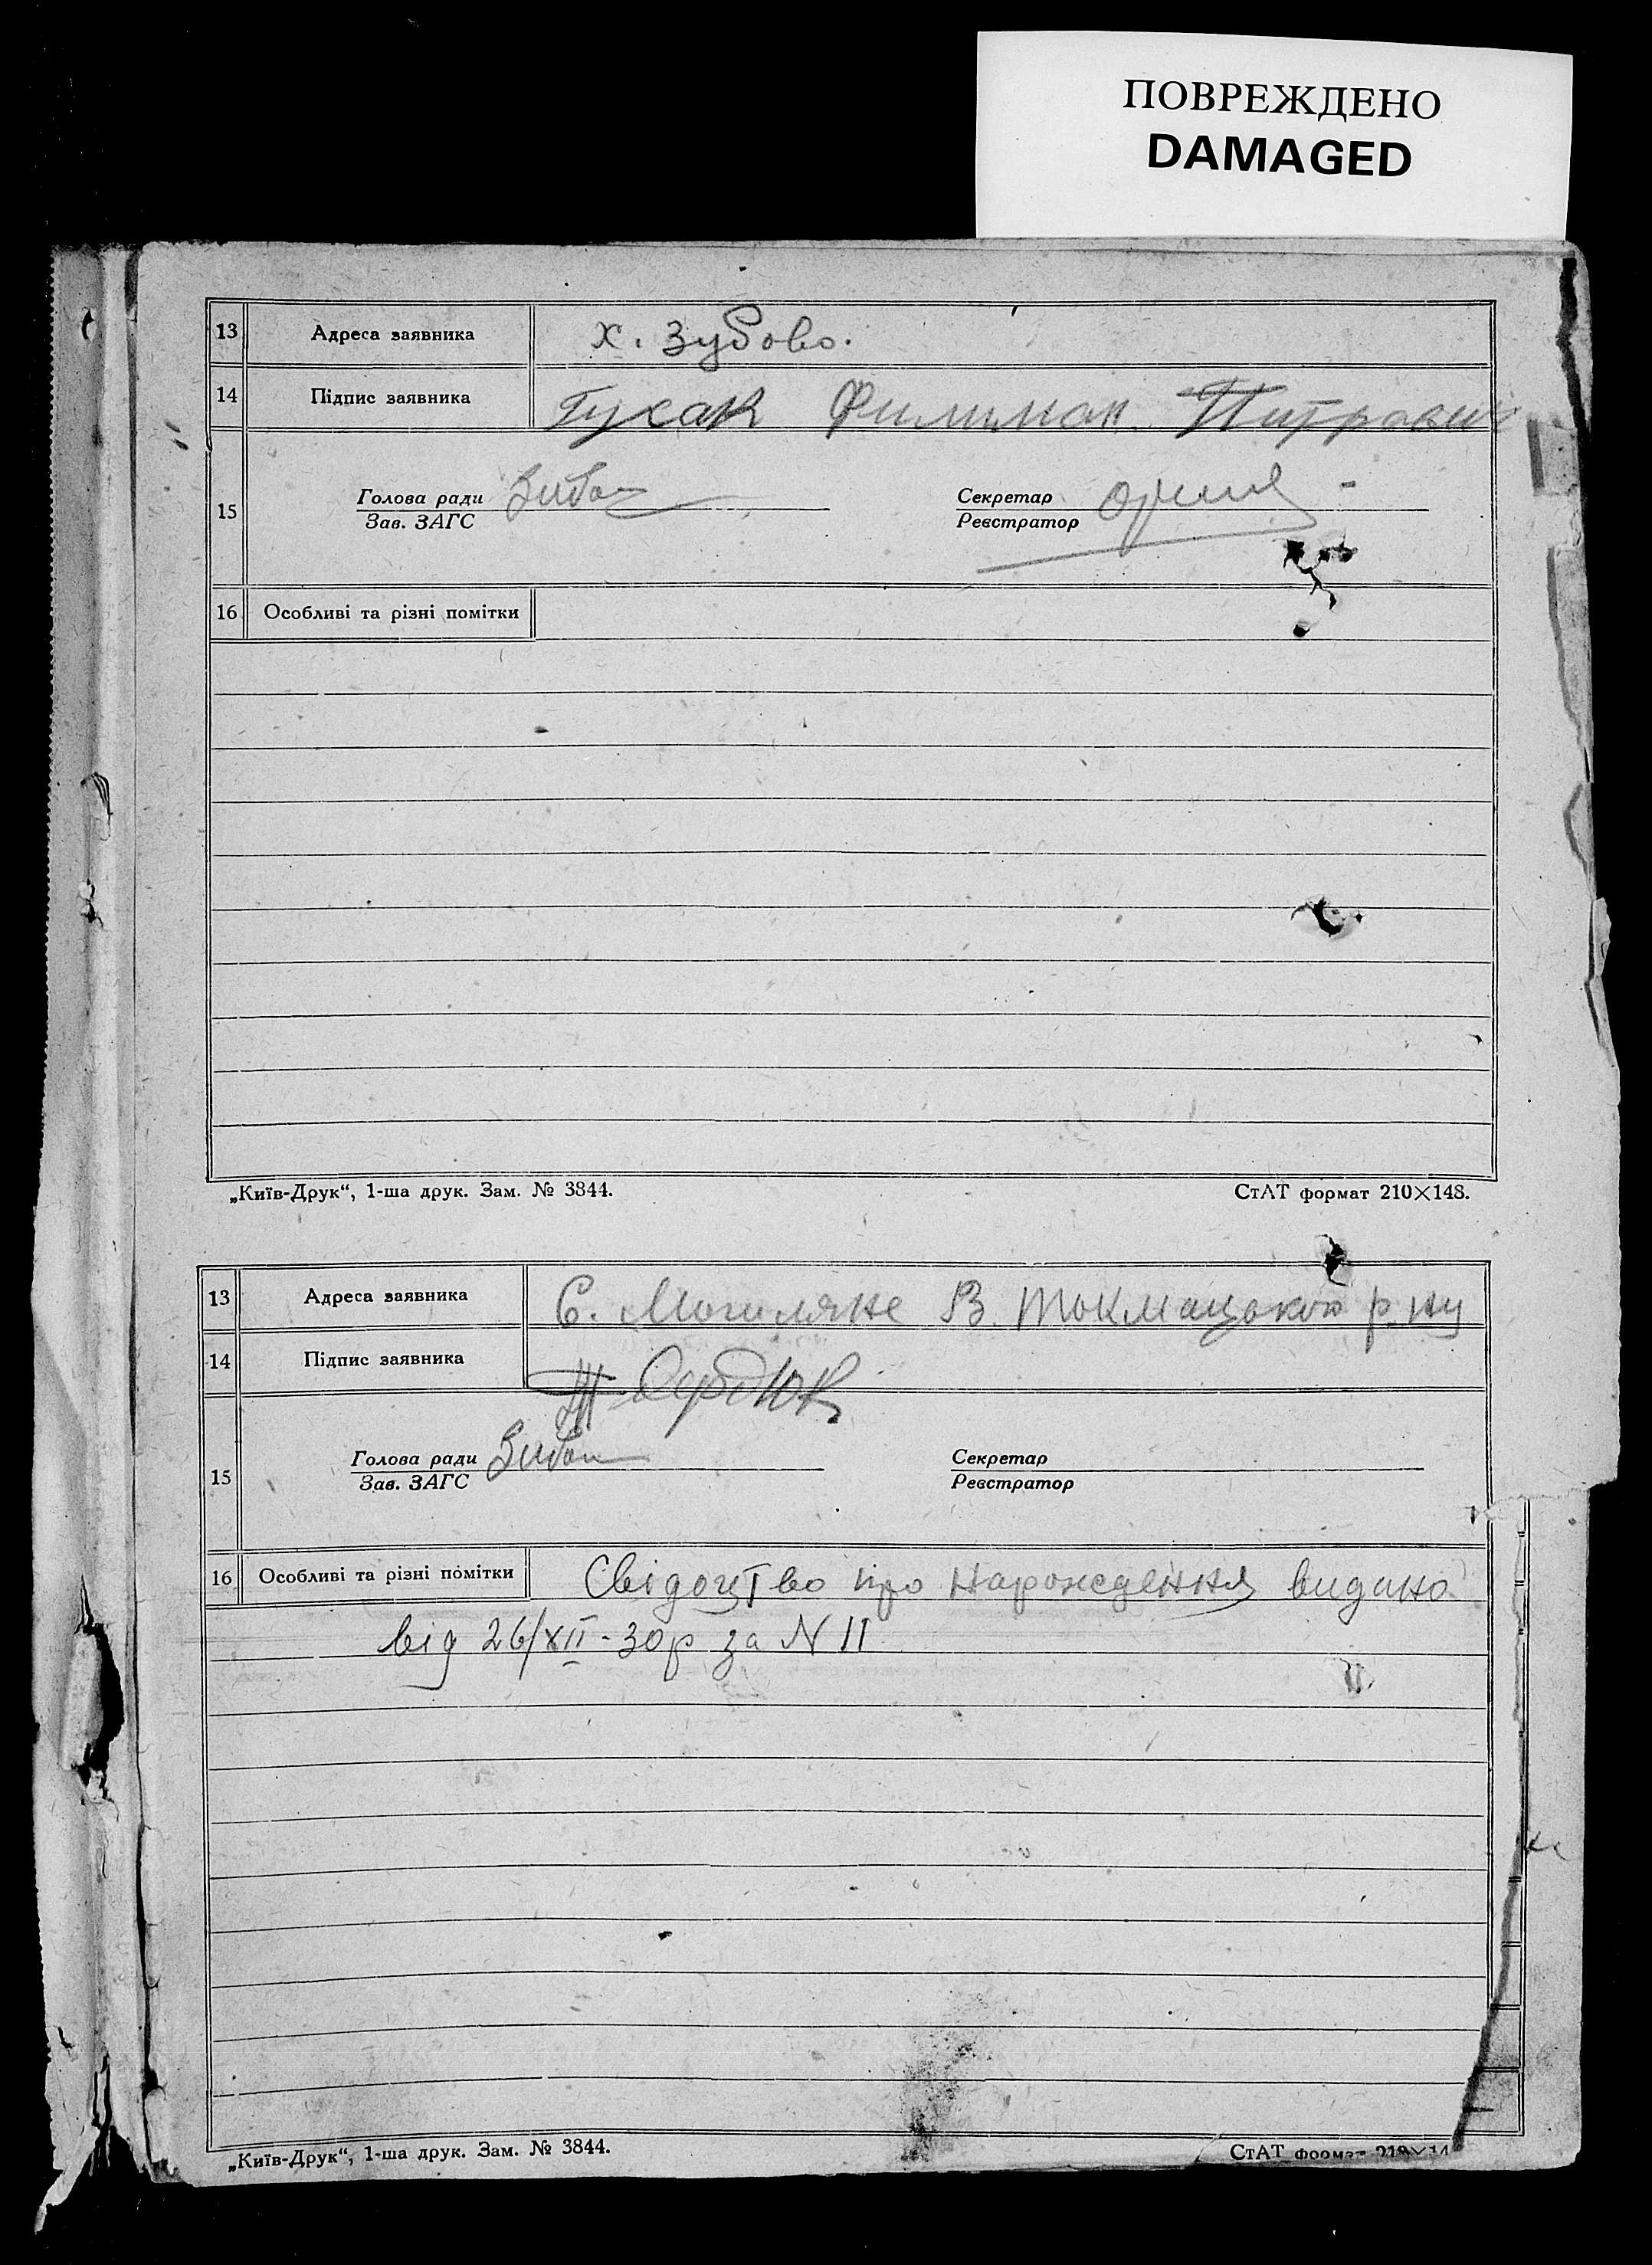 ПОВРЕЖДЕНО
DAMAGED
13 Адреса заявника х. Зубово.
14 Підпис заявника Гусак Филимон Питрович
15 Голова ради Секретар
Зав. ЗАГС Реєстратор
16 Особливі та різні помітки
„Київ-Друк“, 1-ша друк. Зам. № 3844. СтАТ формат 210×148.
13 Адреса заявника С. Могиляне В. Токмацького р-ну
14 Підпис заявника Сердюк
15 Голова ради Секретар
Зав. ЗАГС Реєстратор
16 Особливі та різні помітки Свідоцтво про народження видано
від 26/XII-30р за N 11
„Київ-Друк“, 1-ша друк. Зам. № 3844. СтАТ формат 210×14